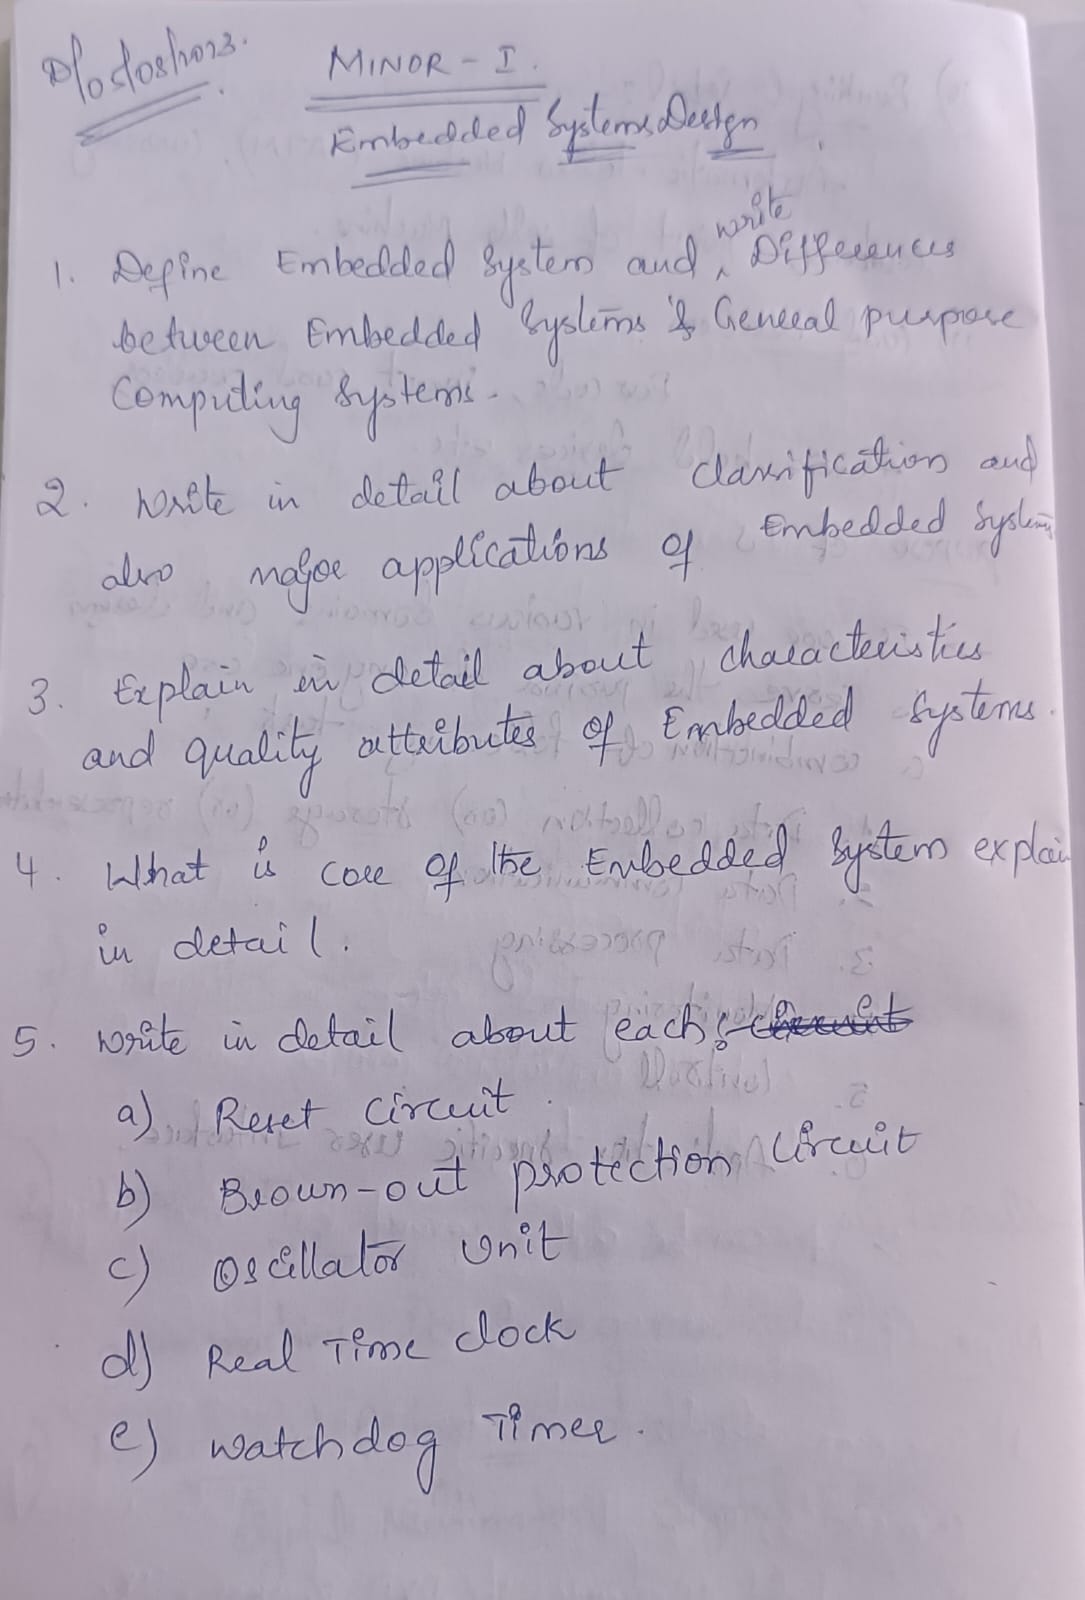 MINOR - I.
Embedded Systems Design
1. Define Embedded System and write Differences
between Embedded Systems & General purpose
Computing Systems.
2. Write in detail about classification and
also major applications of Embedded Systems
3. Explain in detail about characteristics
and quality attributes of Embedded Systems.
4. What is core of the Embedded System explain
in detail.
5. Write in detail about each:-
a) Reset Circuit.
b) Brown-out protection Circuit
c) Oscillator Unit
d) Real Time clock
e) Watchdog Timer.